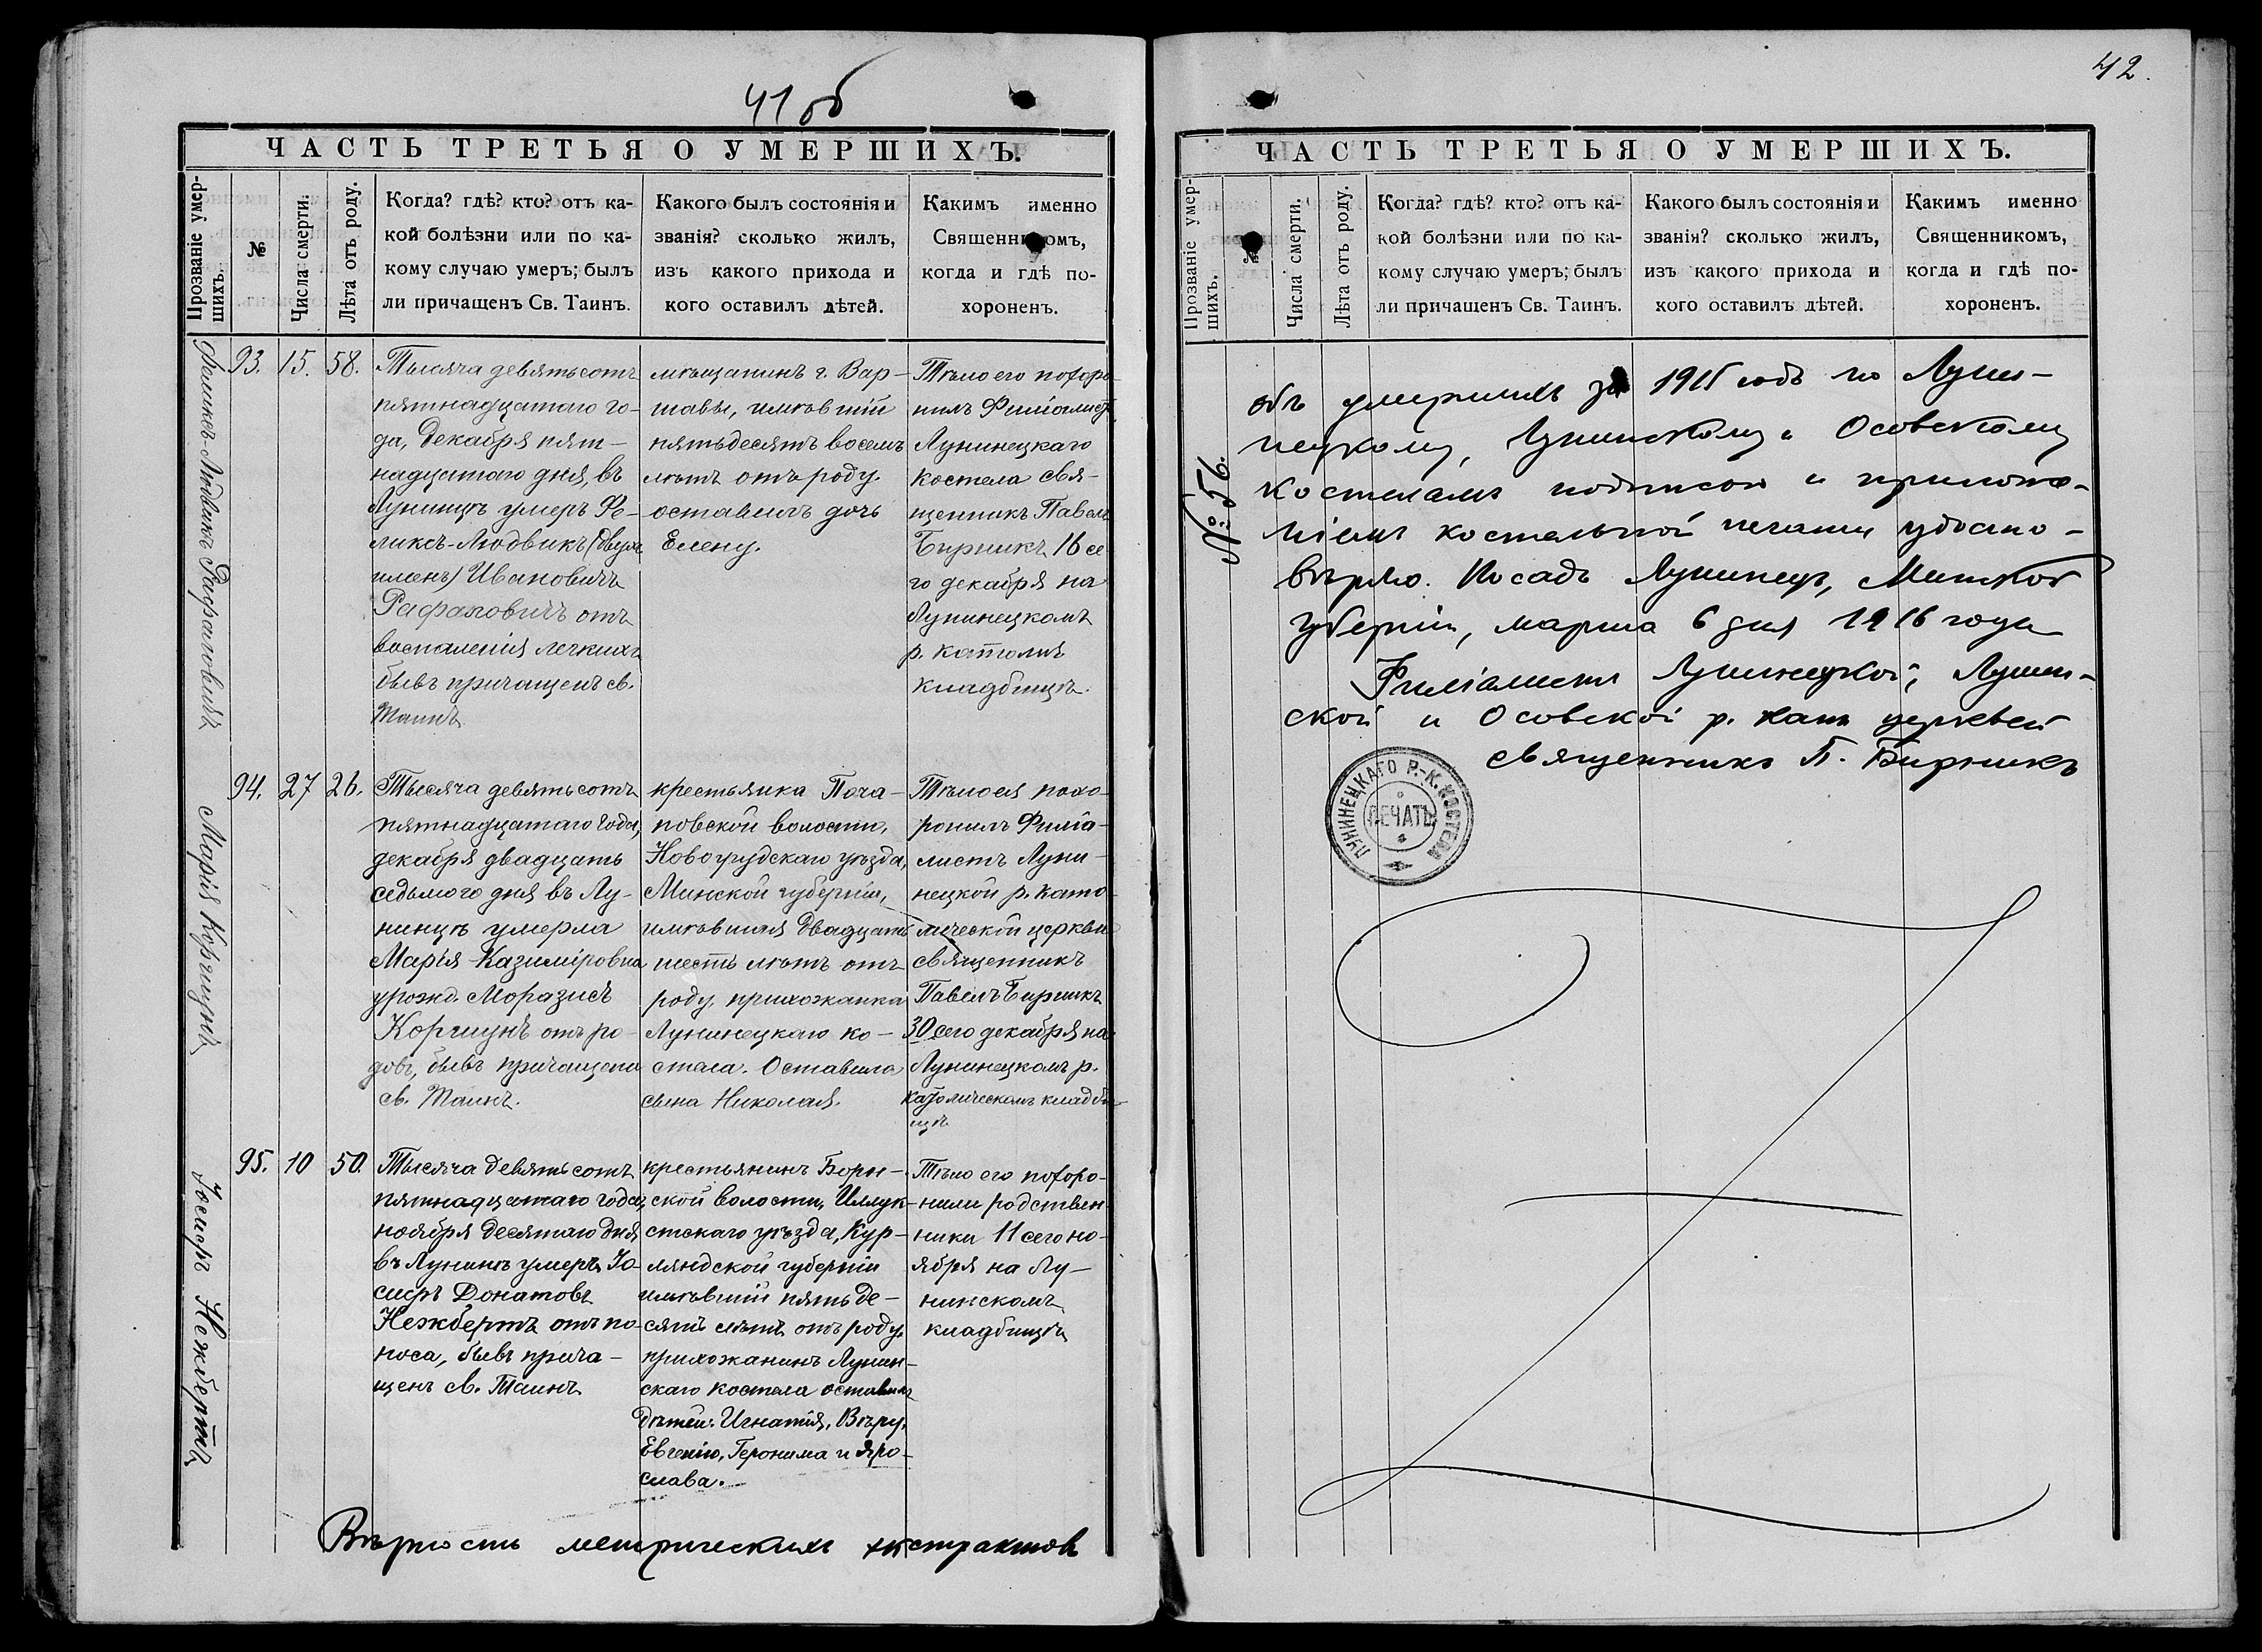 41 об
ЧАСТЬ ТРЕТЬЯ О УМЕРШИХЪ.
Прозваніе умер-
шихъ.
№
Числа смерти.
Лѣта отъ роду.
Когда? гдѣ? кто? отъ ка-
кой болѣзни или по ка-
кому случаю умеръ; былъ
ли причащенъ Св. Таинъ.
Какого былъ состоянія и
званія? сколько жилъ,
изъ какого прихода и
кого оставилъ дѣтей.
Какимъ именно
Священникомъ,
когда и гдѣ по-
хороненъ.
Феликсъ-Людвикъ Рафаловичъ
93. 15. 58.
Тысяча девятьсотъ
пятнадцатаго го-
да, декабря пят-
надцатаго дня, въ
Лунинцѣ умеръ Фе-
ликсъ-Людвикъ (двухъ
именъ) Ивановичъ
Рафаловичъ отъ
воспаленія легкихъ
бывъ причащенъ св.
Таинъ.
мѣщанинъ г. Вар-
шавы, имѣвшій
пятьдесятъ восемь
лѣтъ отъ роду.
оставилъ дочь
Елену.
Тѣло его похоро-
нилъ Филіалистъ
Лунинецкаго
костела свя-
щенникъ Павелъ
Бирникъ 16 се-
го декабря на
Лунинецкомъ
р. католич
кладбищѣ.
Марія Коргунъ
94. 27 26.
Тысяча девятьсотъ
пятнадцатаго года,
декабря двадцать
седьмого дня въ Лу-
нинцѣ умерла
Марія Казиміровна
урожд. Моразисъ
Коргунъ отъ ро-
довъ, бывъ причащена
св. Таинъ.
крестьянка Поча-
повской волости,
Новогрудскаго уѣзда,
Минской губерніи,
имѣвшая двадцать
шесть лѣтъ отъ
роду, прихожанка
Лунинецкаго ко-
стела. Оставила
сына Николая.
Тѣло ея похо-
ронилъ Филіа-
листъ Луни-
нецкой р. като-
лической церкви
священникъ
Павелъ Бирникъ
30 сего декабря на
Лунинецкомъ р.
католическомъ кладби-
щѣ
Іосифъ Нежбертъ
95. 10 50.
Тысяча девятьсотъ
пятнадцатаго года,
ноября десятаго дня
въ Лунинѣ умеръ Іо-
сифъ Донатовъ
Нежбертъ отъ по-
носа, бывъ прича-
щенъ св. Таинъ
крестьянинъ Борн-
ской волости, Иллук-
стскаго уѣзда, Кур-
ляндской губерніи
имѣвшій пятьде-
сятъ лѣтъ отъ роду,
прихожанинъ Лунин-
скаго костела оставилъ
дѣтей: Игнатія, Вѣру,
Евгенію, Геронима и Яро-
слава.
Тѣло его похоро-
нили родствен-
ники 11 сего но-
ября на Лу-
нинскомъ
кладбищѣ
Вѣрность метрическихъ экстрактовъ
42.
ЧАСТЬ ТРЕТЬЯ О УМЕРШИХЪ.
Прозваніе умер-
шихъ.
№
Числа смерти.
Лѣта отъ роду.
Когда? гдѣ? кто? отъ ка-
кой болѣзни или по ка-
кому случаю умеръ; былъ
ли причащенъ Св. Таинъ.
Какого былъ состоянія и
званія? сколько жилъ,
изъ какого прихода и
кого оставилъ дѣтей.
Какимъ именно
Священникомъ,
когда и гдѣ по-
хороненъ.
№ 56.
объ умершихъ за 1915 годъ по Лунин-
нецкому, Лунинскому и Осовскому
костеламъ подписью и приложе-
ніемъ костельной печати удосто-
вѣряю. Посадъ Лунинецъ, Минской
губерніи, марта 6 дня 1916 года
Филіалистъ Лунинецкой, Лунин-
ской и Осовской р. кат церквей
священникъ П. Бирникъ
ЛУНИНЕЦКАГО Р.-К. КОСТЕЛА
ПЕЧАТЬ